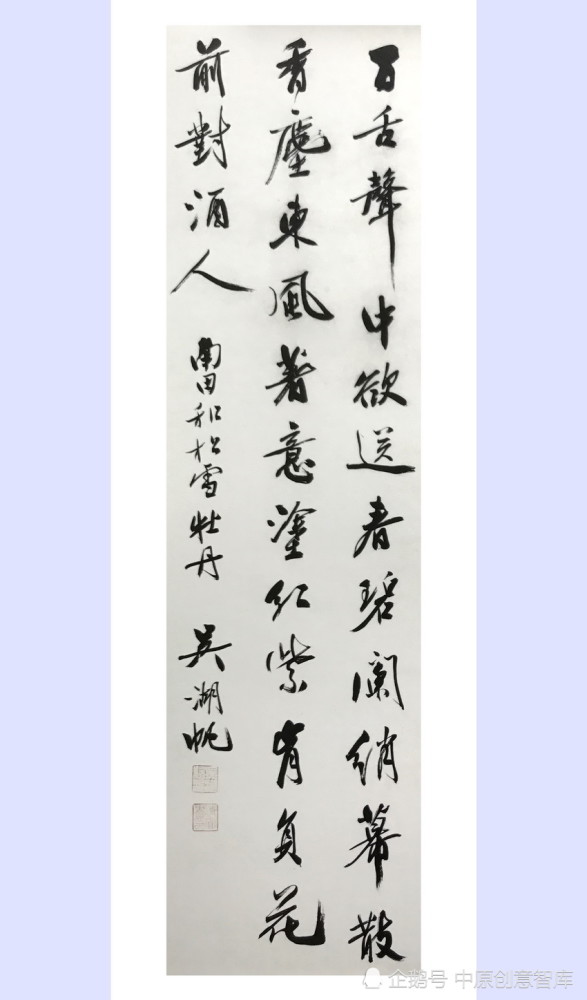 百舌聲中欲送春碧闌綃幕散
香塵東風著意塗紅紫肯負花
前對酒人
南田和松雪牡丹
吴湖帆
企鹅号 中原创意智库